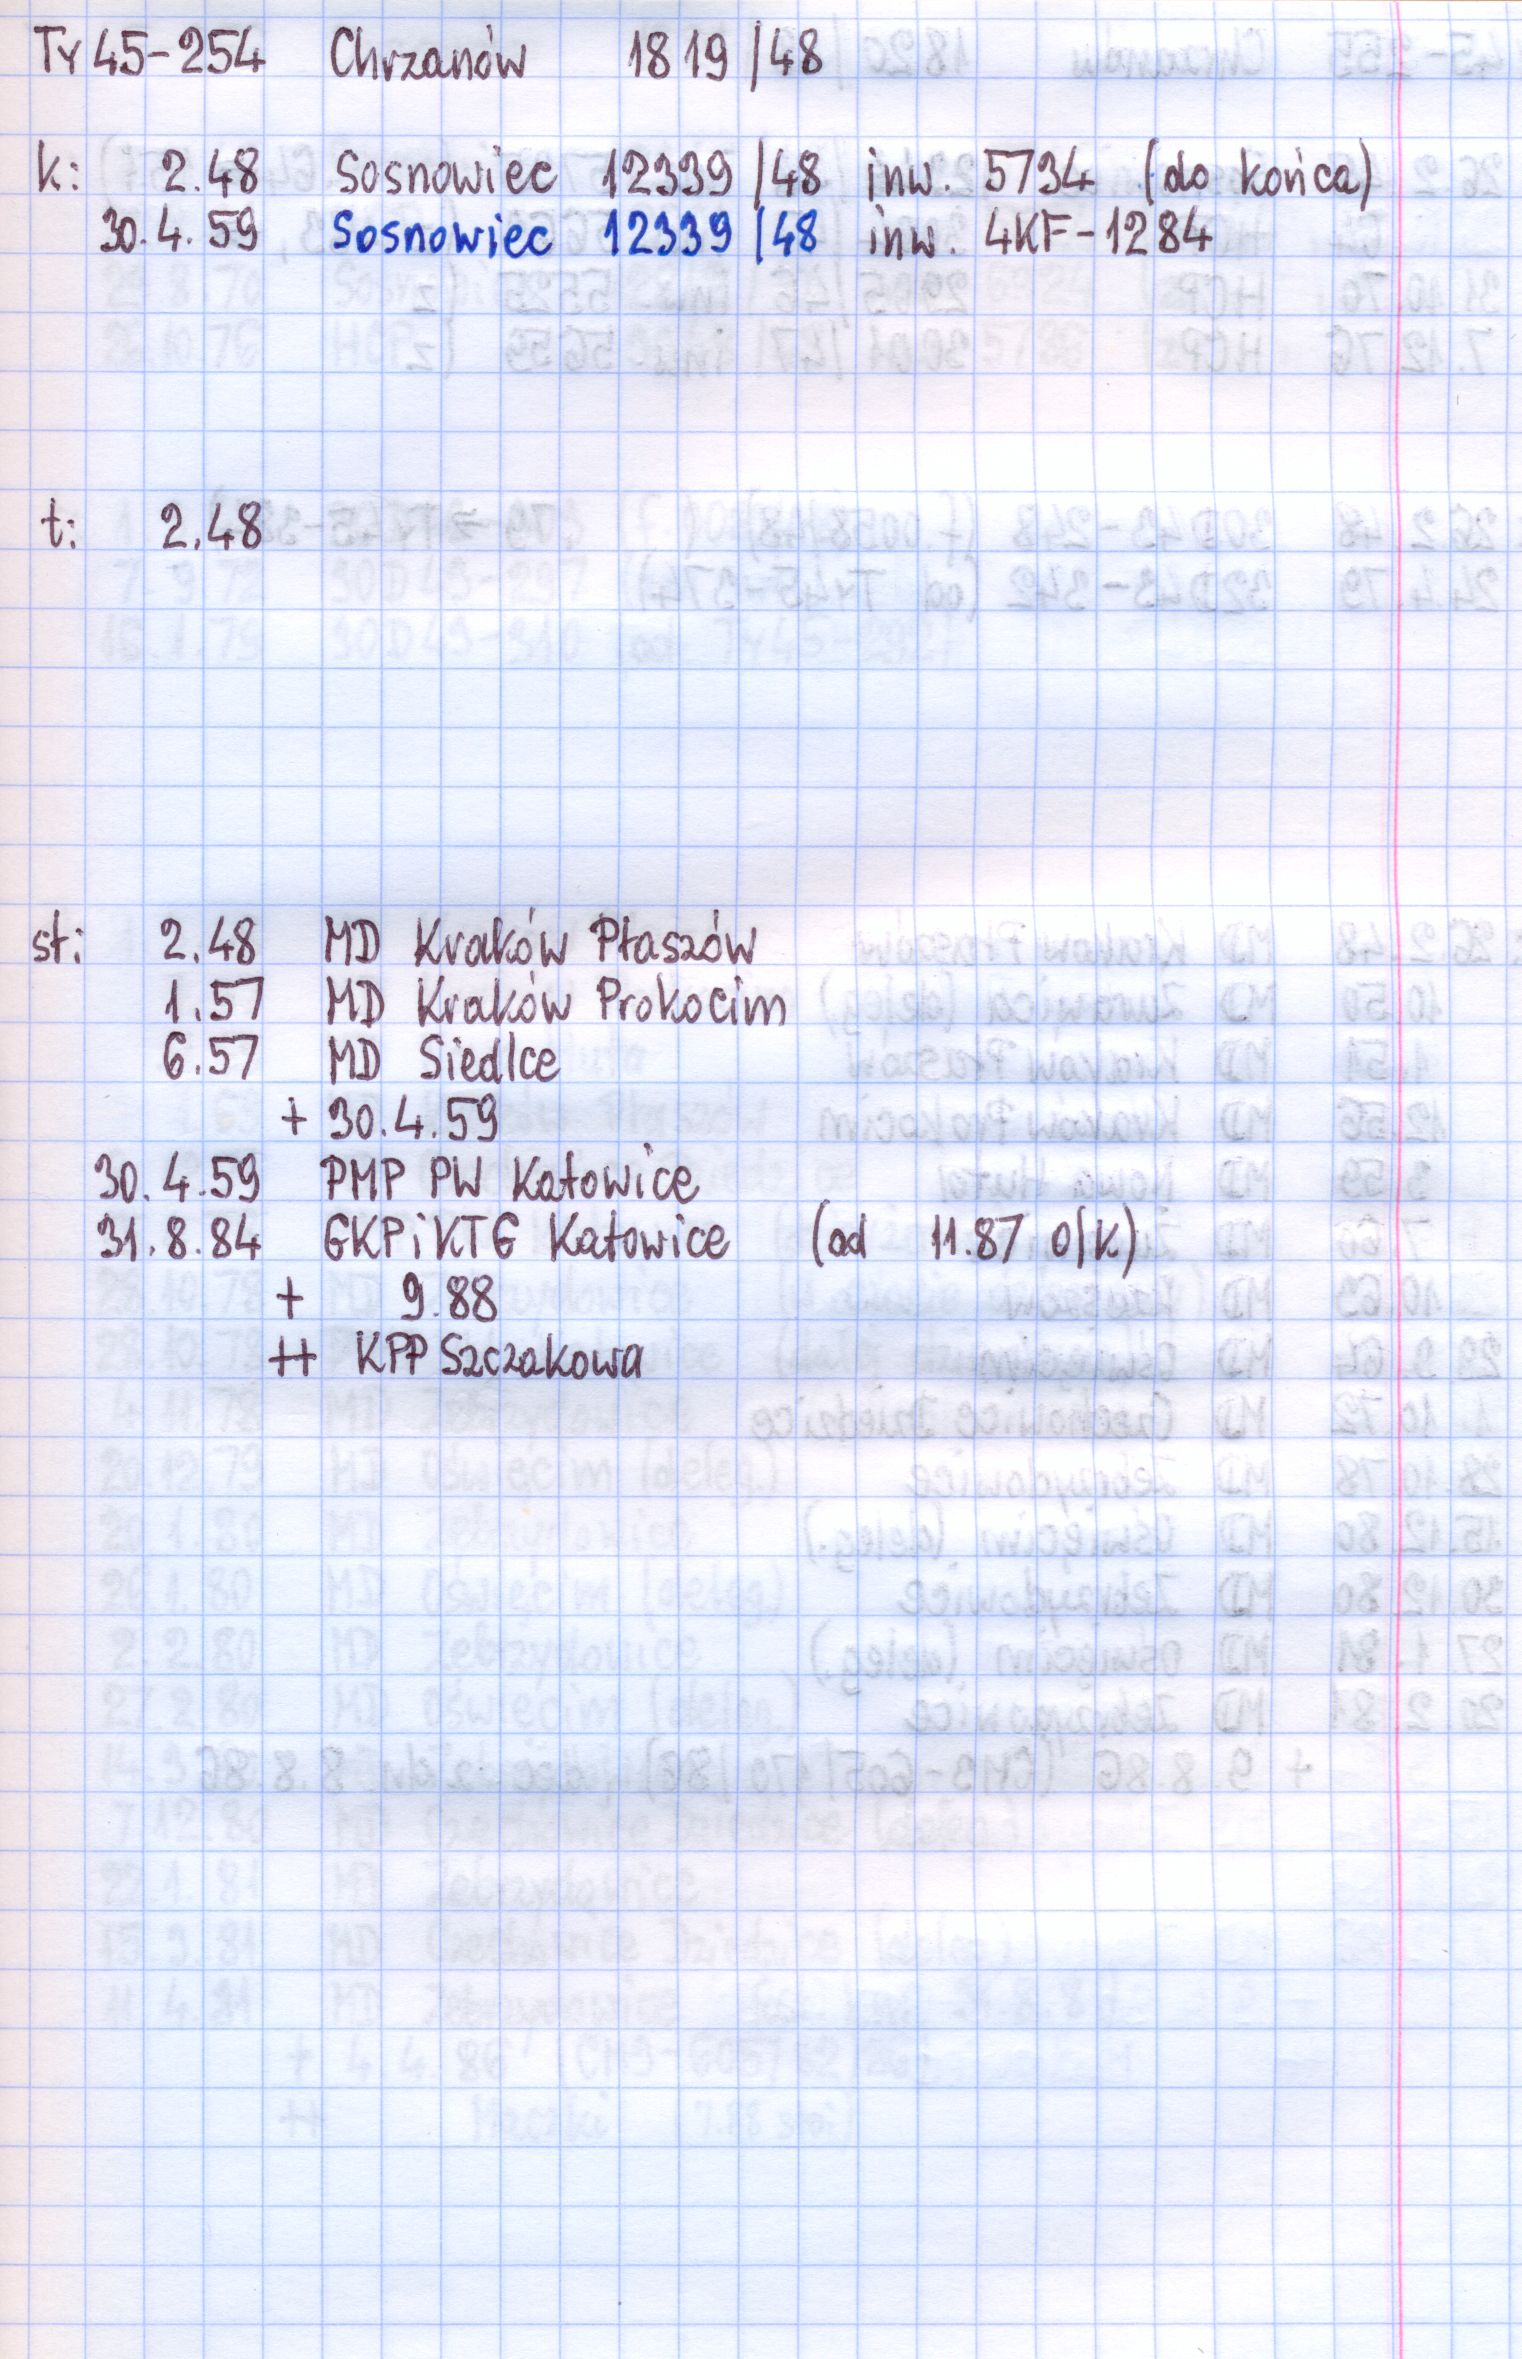 Ty 45-254 Chrzanów 1819/48
k: 2.48 Sosnowiec 12339/48 inw. 5734 (do końca)
30.4.59 Sosnowiec 12339/48 inw. 4KF-1284
t: 2.48
st: 2.48 MD Kraków Płaszów
1.57 MD Kraków Prokocim
6.57 MD Siedlce
+ 30.4.59
30.4.59 PMP PW Katowice
31.8.84 GKPiKTG Katowice (od 11.87 O/K)
+ 9.88
++ KPP Szczakowa